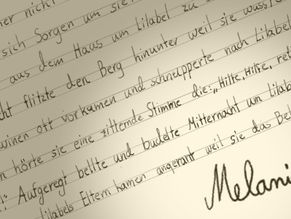 her nicht
sich Sorgen um sie
aus dem Haus um Lilabel zu s
cht flitzte den Berg hinunter weil sie wusste
winen oft vorkamen und schnupperte nach Lilabel
n hörte sie eine zitternde Stimme die: „Hilfe, Hilfe, rett
l." Aufgeregt bellte und buldte Mitternacht um Lilab
ilabels Eltern kamen angerannt weil sie das Bel
Melani